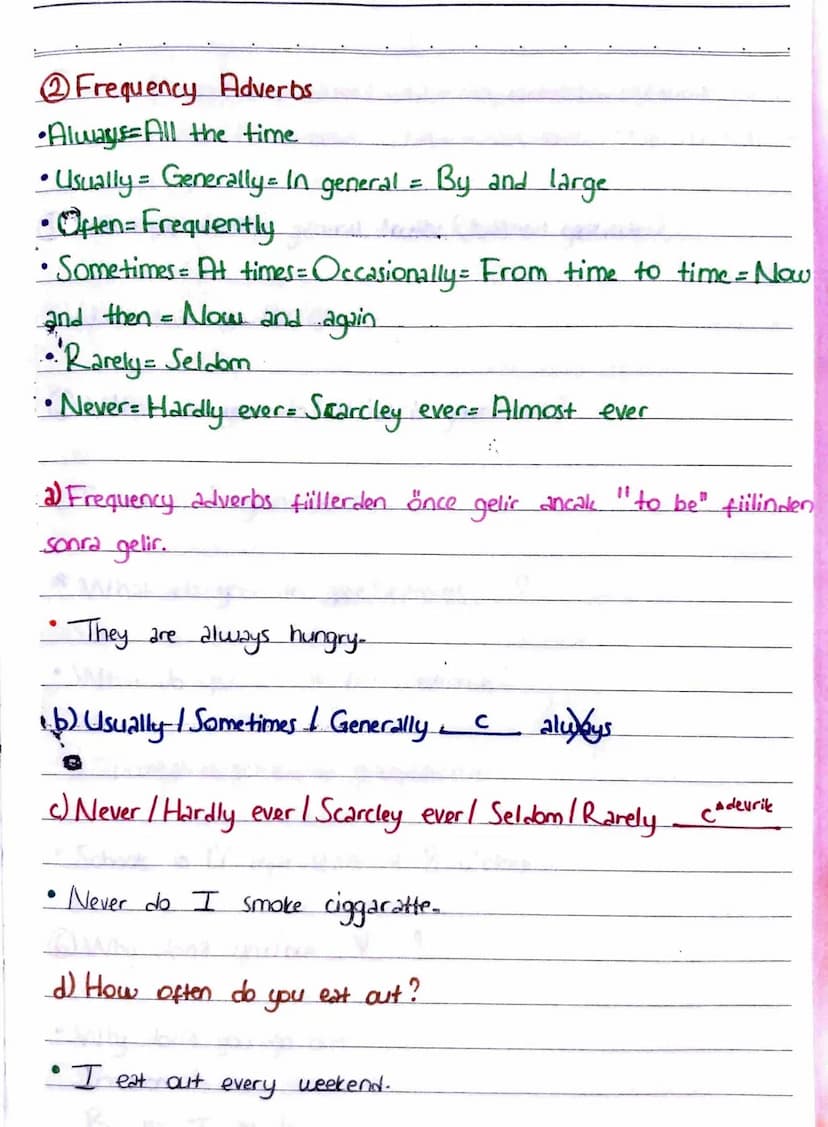 ② Frequency Adverbs
• Always = All the time
• Usually = Generally = In general = By and large
• Often = Frequently
• Sometimes = At times = Occasionally = From time to time = Now
and then = Now and again
• Rarely = Seldom
• Never = Hardly ever = Scarcley ever = Almost ever
a) Frequency adverbs fiillerden önce gelir ancak "to be" fiilinden
sonra gelir.
• They are always hungry.
b) Usually / Sometimes / Generally ___c___ always
c) Never / Hardly ever / Scarcley ever / Seldom / Rarely ___c devrik___
• Never do I smoke ciggaratte.
d) How often do you eat out?
• I eat out every weekend.